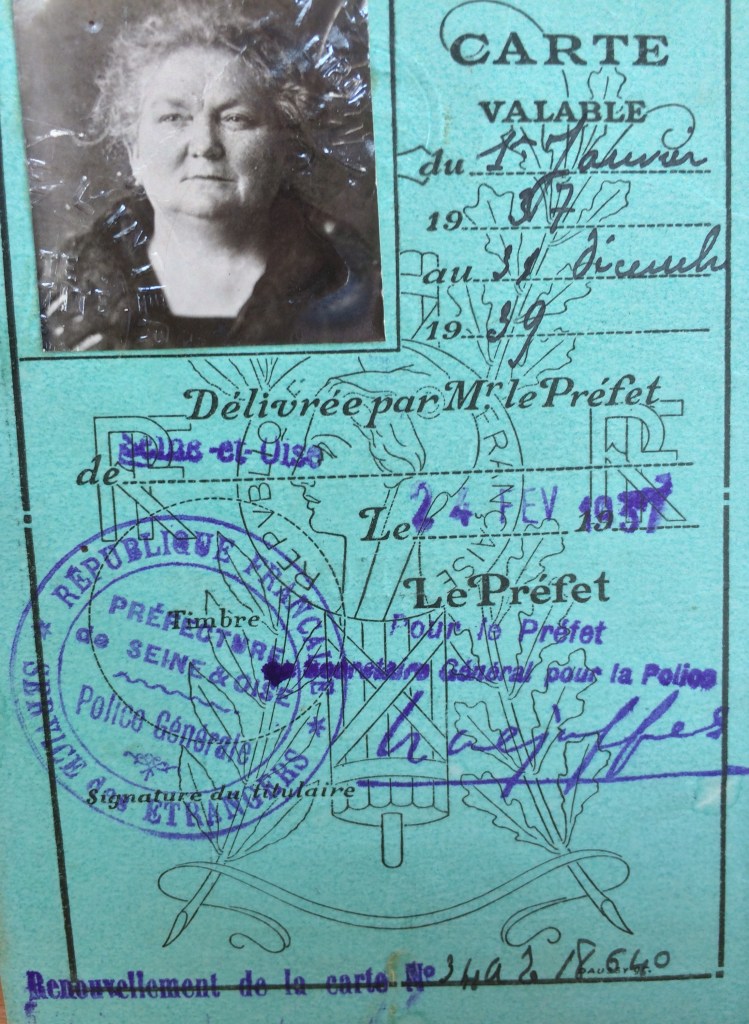 CARTE
VALABLE
du 1er Janvier
1937
au 31 Décembre
1939
Délivrée par Mr. le Préfet
de Seine-et-Oise
Le 24 FEV 1937
RF
RF
RÉPUBLIQUE FRANÇAISE
Le Préfet
Pour le Préfet
Le Secrétaire Général pour la Police
Timbre
RÉPUBLIQUE FRANÇAISE
PRÉFECTURE
de SEINE & OISE
Police Générale
SERVICE des ETRANGERS
Signature du titulaire
Renouvellement de la carte No